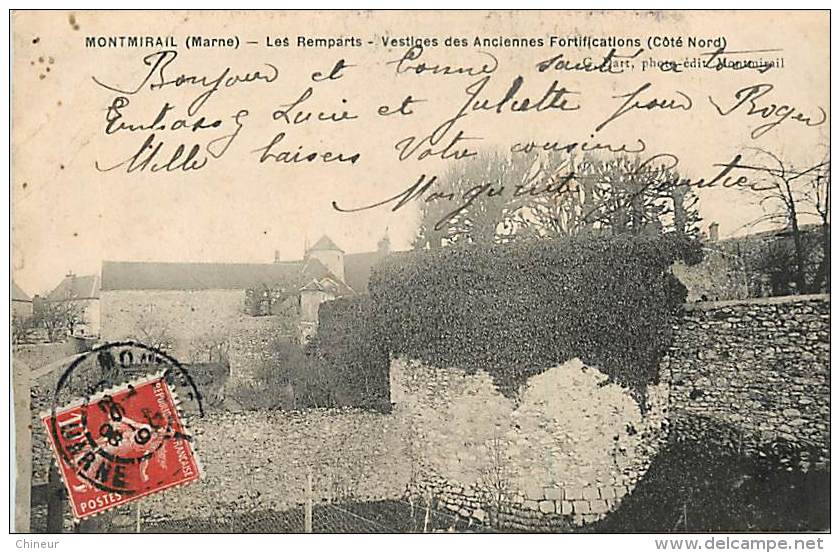 MONTMIRAIL (Marne) - Les Remparts - Vestiges des Anciennes Fortifications (Côté Nord)
photo-édit. Montmirail
Bonjour et bonne santé a tous
Embrassez Lucie et Juliette pour Roger
Mille baisers Votre cousine
Marguerite Gautier
MARNE
REPUBLIQUE FRANÇAISE
POSTES
Chineur
www.delcampe.net